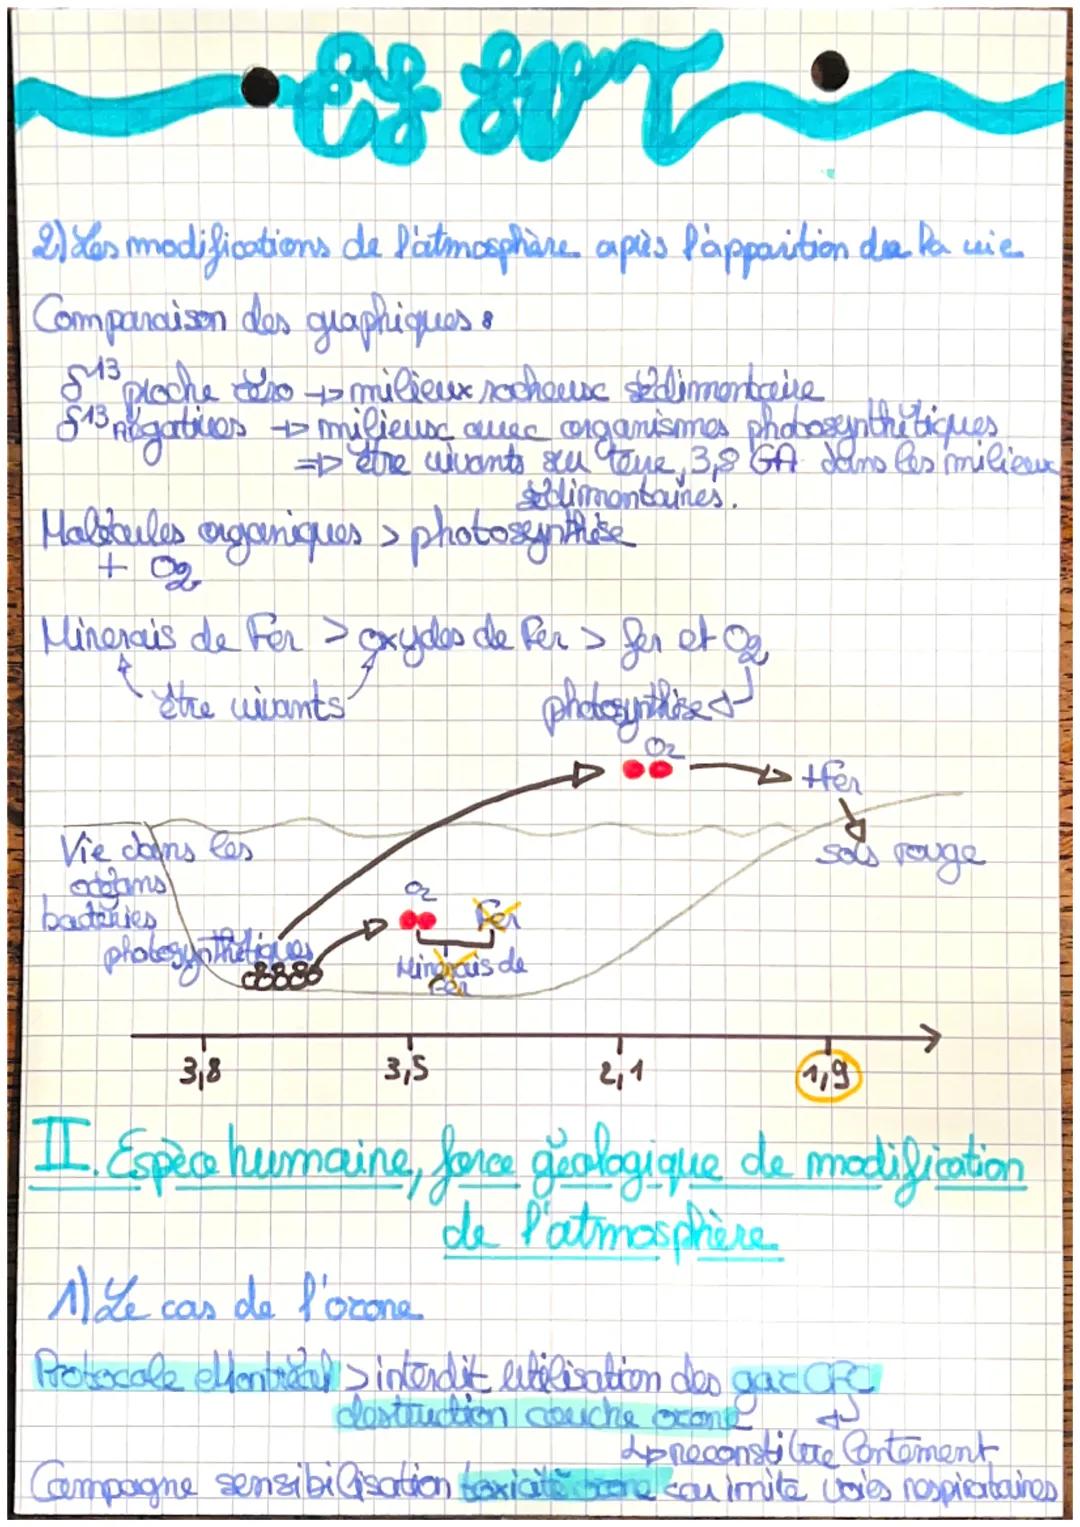 ES SVT
2) Les modifications de l'atmosphère après l'apparition de la vie
Comparaison des graphiques :
δ13 proche zéro → milieux rocheux sédimentaire
δ13 négatives → milieux avec organismes photosynthétiques
⇒ être vivants sur Terre, 3,8 GA dans les milieux
sédimentaires.
Molécules organiques > photosynthèse
+ O2
Minerais de Fer > oxydes de Fer > fer et O2
être vivants
photosynthèse
O2
+Fer
sols rouge
Vie dans les
océans
bactéries
photosynthétiques
O2
Fer
Minerais de
Fer
3,8 3,5 2,1 1,9
II. Espèce humaine, force géologique de modification
de l'atmosphère
1) Le cas de l'ozone
Protocole Montréal > interdit utilisation des gaz CFC
destruction couche ozone
↳ reconstitue lentement
Campagne sensibilisation toxicité ozone car irrite voies respirataires